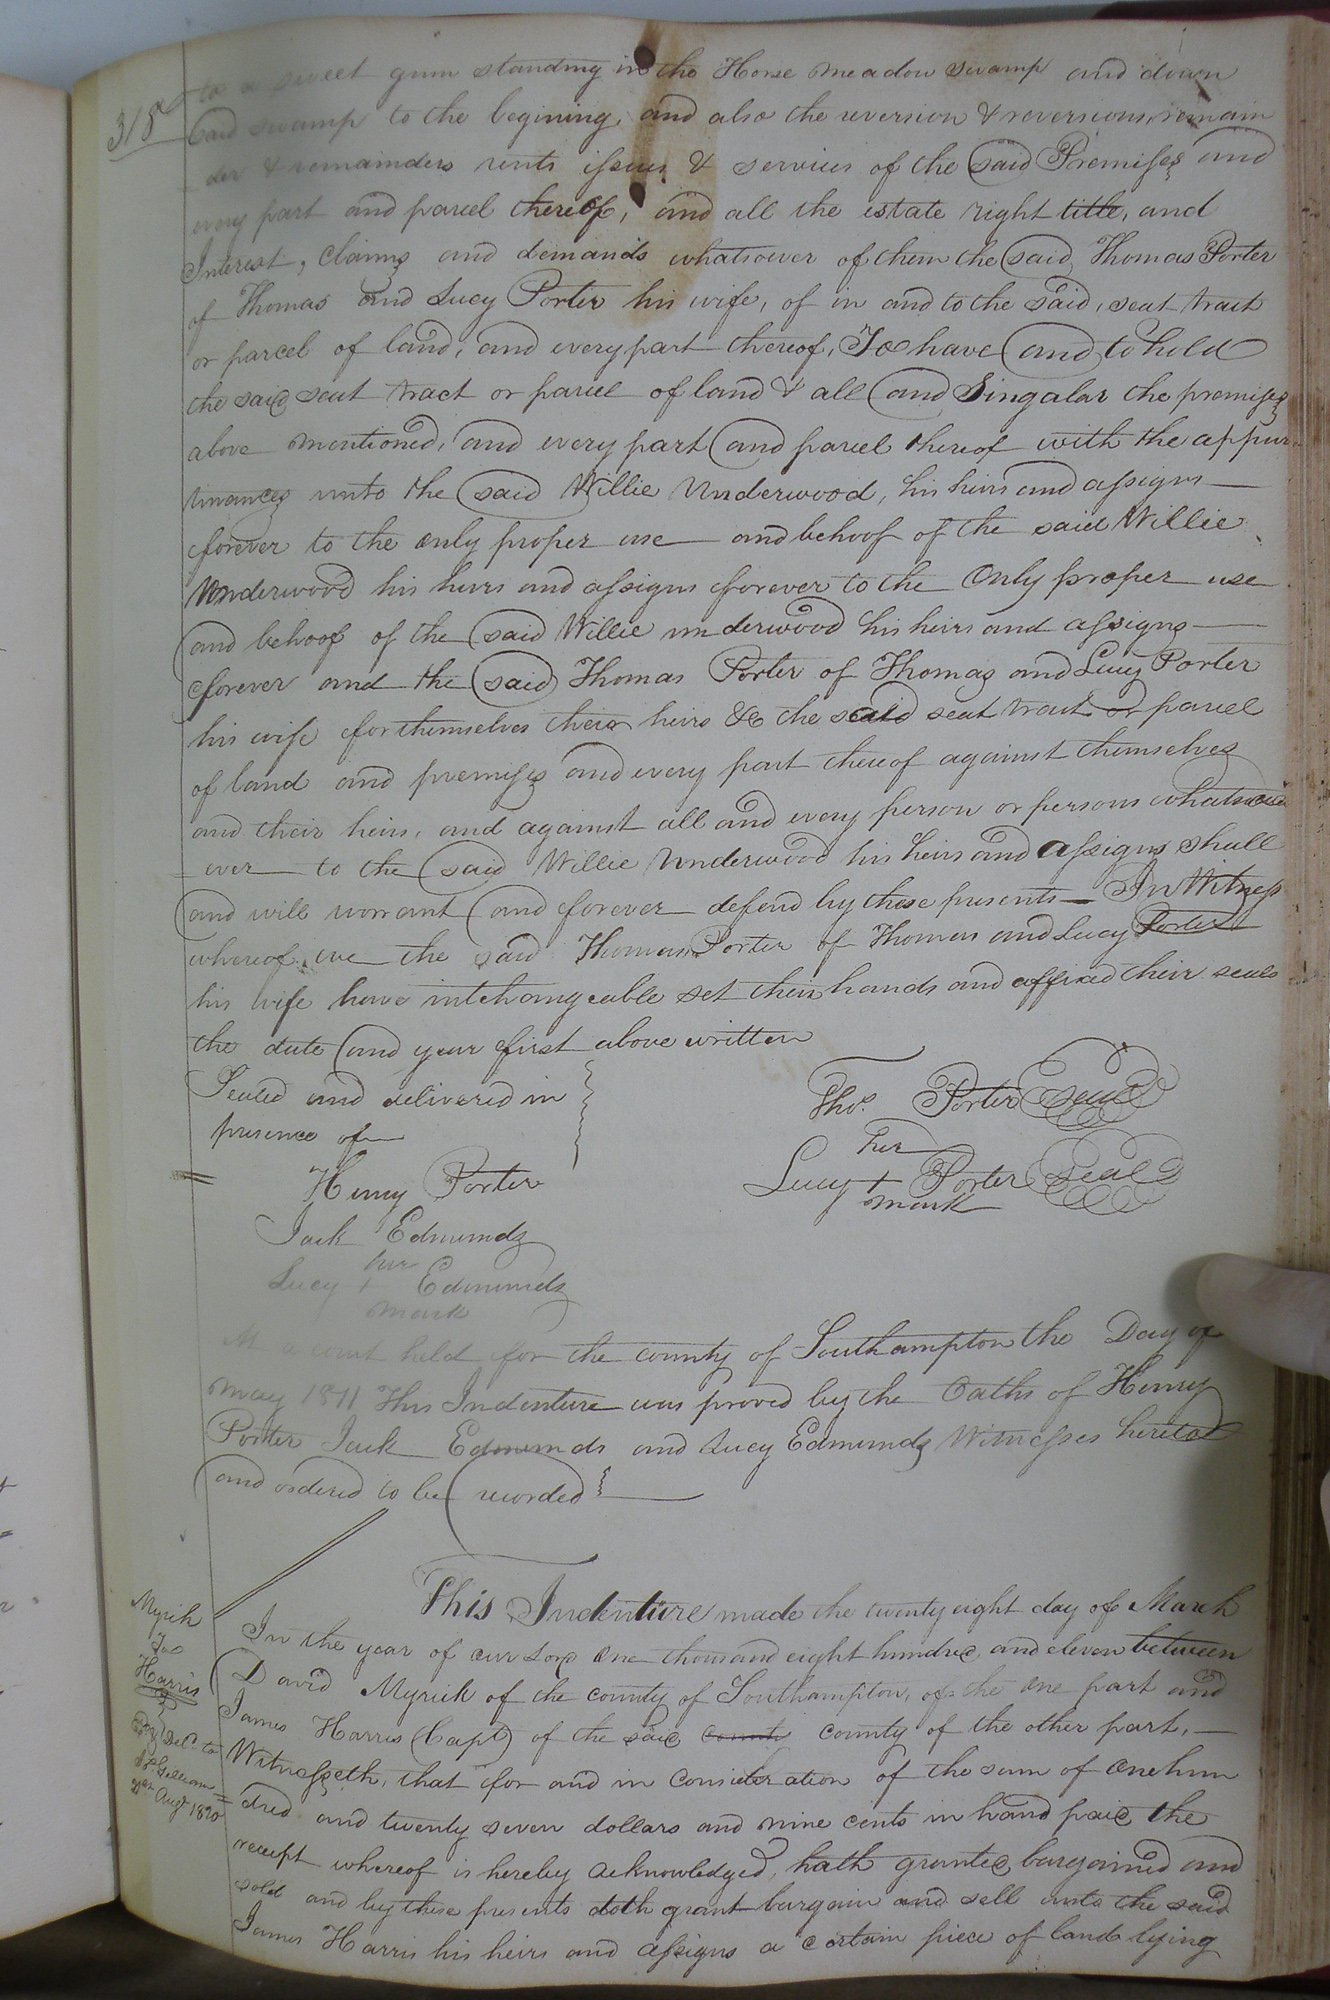 318
to a sweet gum standing in the Horse meadow swamp and down
said swamp to the begining, and also the reversion & reversions, remain
der & remainders rents issues & services of the said Premises and
every part and parcel thereof, and all the estate right title, and
Interest, Claims and demands whatsoever of them the said Thomas Porter
of Thomas and Lucy Porter his wife, of in and to the said, seat tract
or parcel of land, and every part thereof, To have and to hold
the said seat tract or parcel of land & all and Singular the premises
above mentioned, and every part and parcel thereof with the appur
tinances unto the said Willie Underwood, his heirs and assigns
forever to the only proper use and behoof of the said Willie
Underwood his heirs and assigns forever to the Only proper use
and behoof of the said Willie underwood his heirs and assigns
forever and the said Thomas Porter of Thomas and Lucy Porter
his wife for themselves their heirs &c the said seat tract or parcel
of land and premises and every part thereof against themselves
and their heirs, and against all and every person or persons whatso
ever to the said Willie Underwood his heirs and assigns shall
and will warrant and forever defend by these presents In Witness
whereof we the said Thomas Porter of Thomas and Lucy Porter
his wife have intchangeable set their hands and affixed their seals
the date and year first above written
Sealed and delivered in
presence of
Thos. Porter seal
her
Lucy + Porter seal
mark
Henry Porter
Jack Edmunds
her
Lucy + Edmunds
mark
At court held for the county of Southampton the Day of
may 1811 This Indenture was proved by the Oaths of Henry
Porter Jack Edmunds and Lucy Edmunds Witnesses hereto
and ordered to be recorded
Myrick
To
Harris
Del. to
Gilliam
Augt 1820
This Indenture made the twenty eight day of March
In the year of our Lord One thousand eight hundred and eleven between
David Myrick of the county of Southampton, of the one part and
James Harris (Capt) of the said county of the other part,
Witnesseth, that for and in consideration of the sum of one hun
dred and twenty seven dollars and nine cents in hand paid the
receipt whereof is hereby acknowledged, hath granted bargained and
sold and by these presents doth grant bargain and sell unto the said
James Harris his heirs and assigns a certain piece of land lying